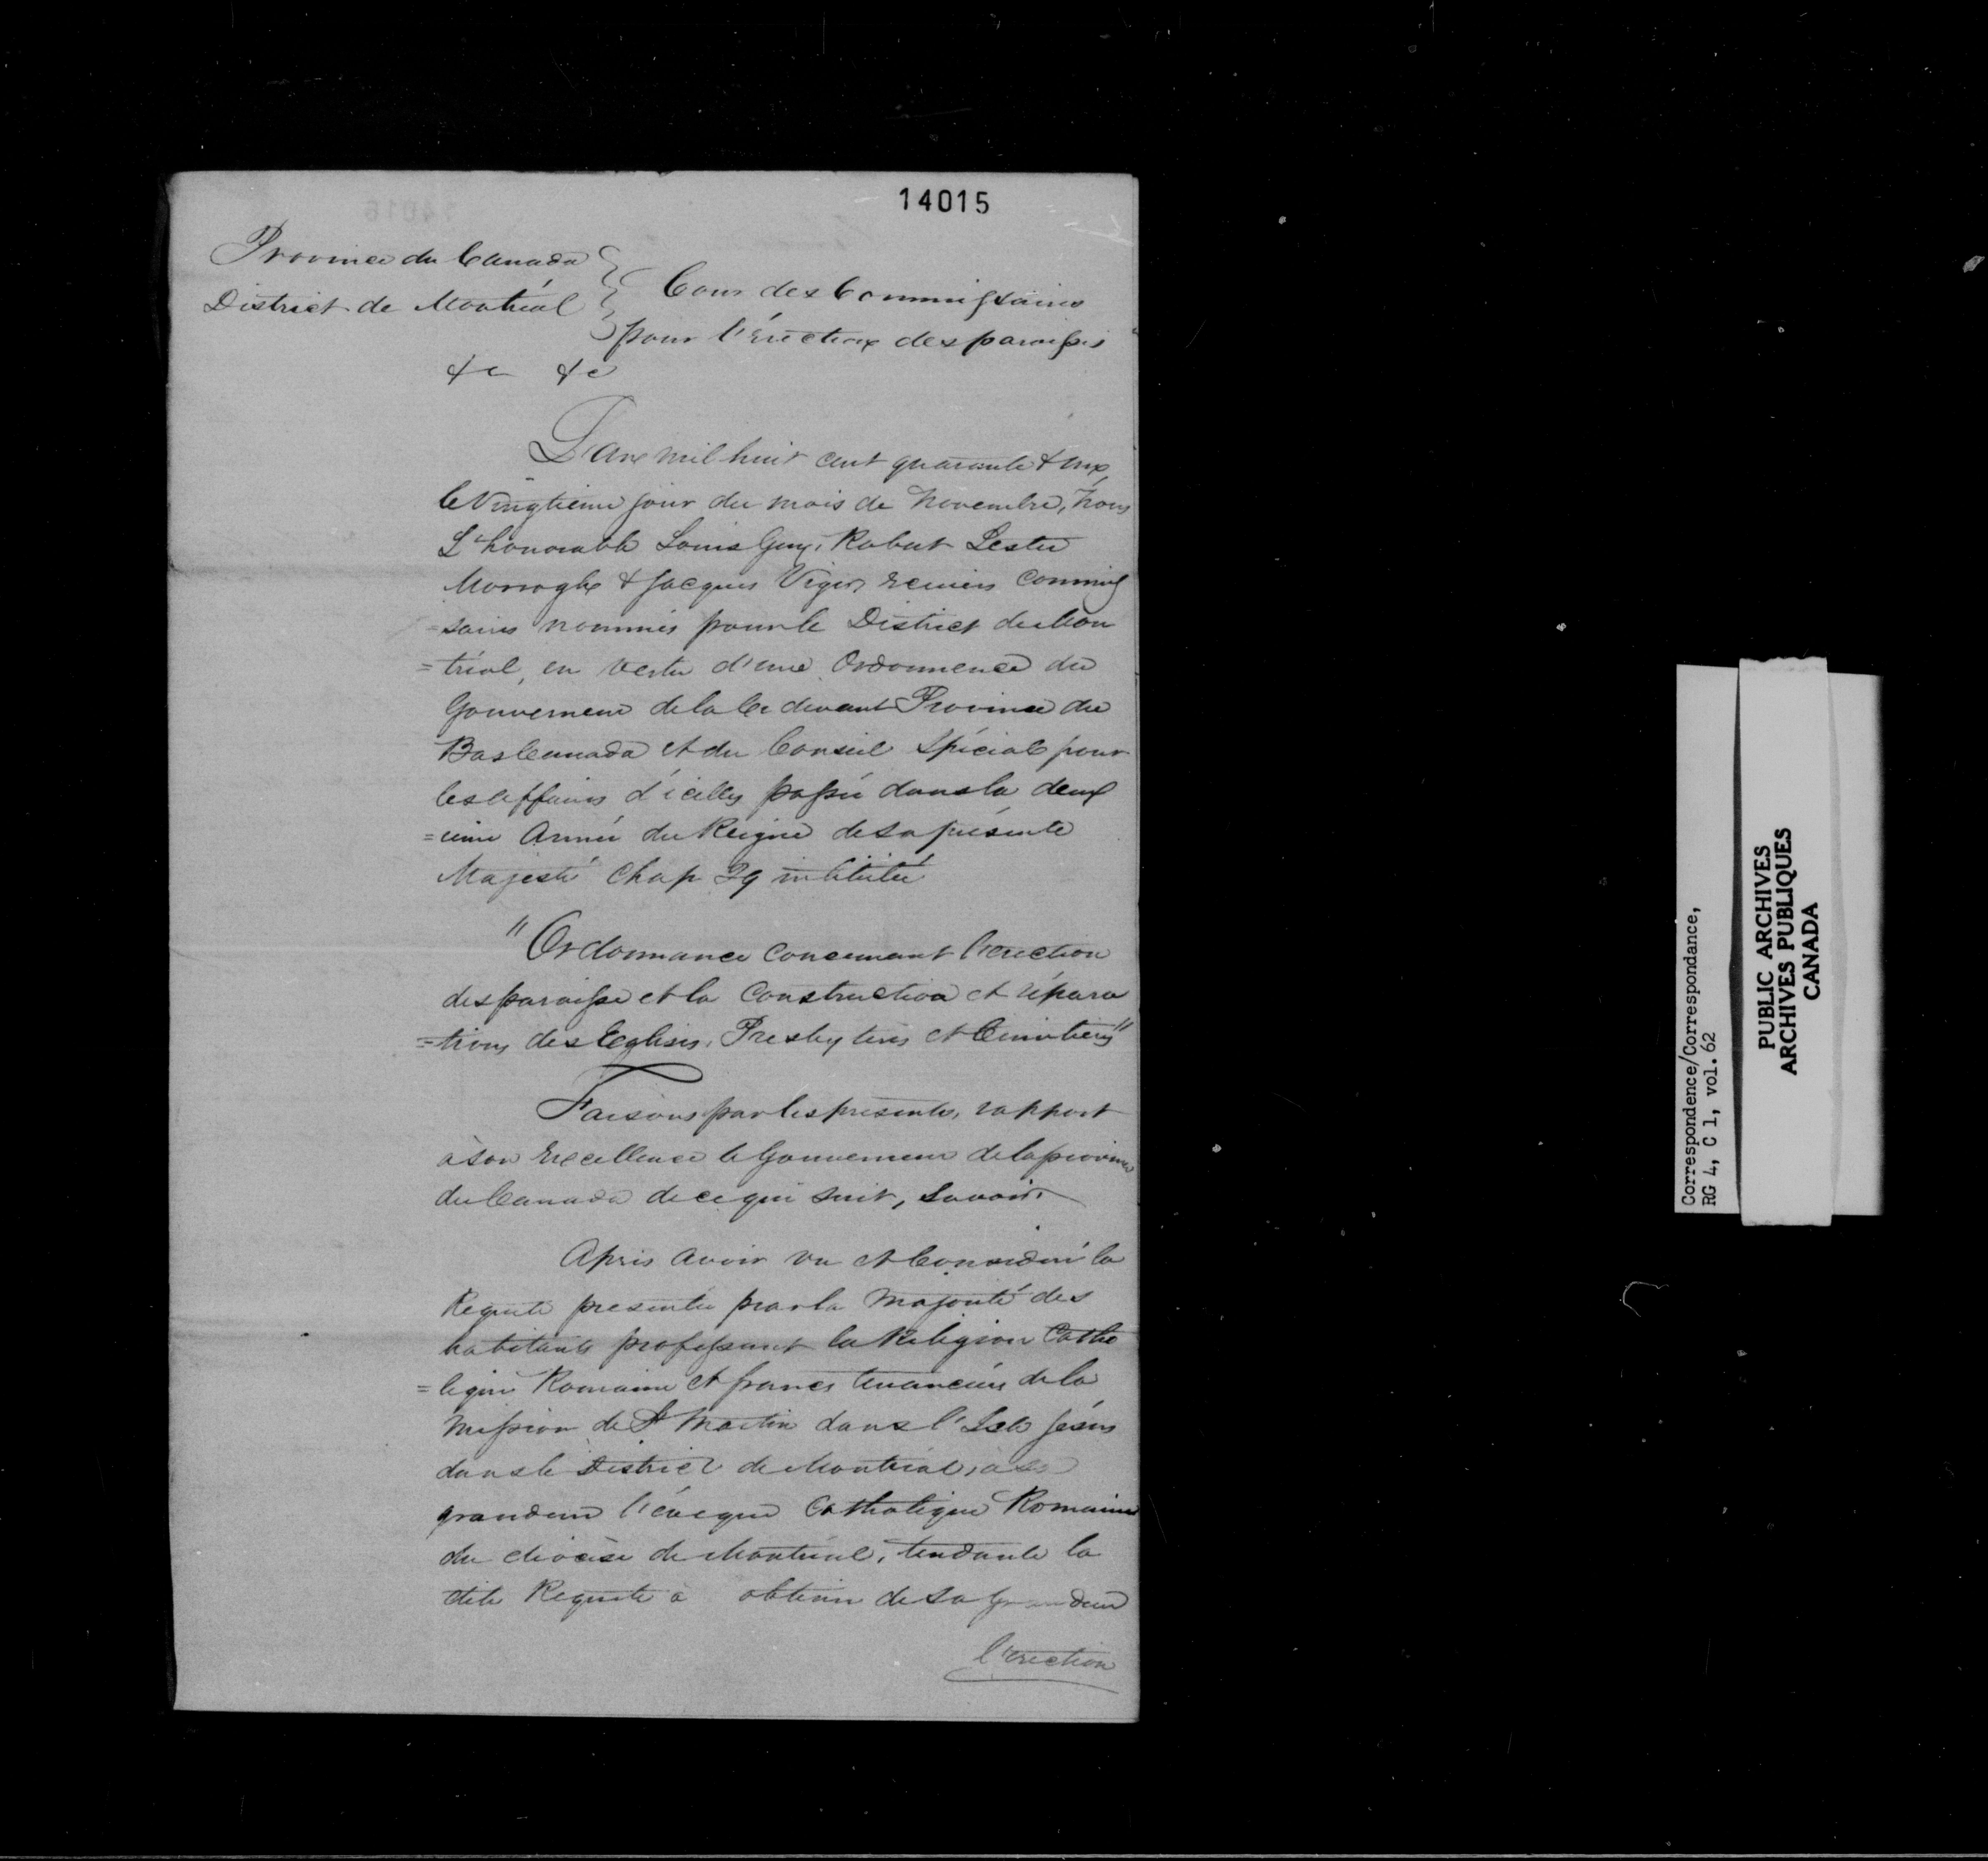 14015
Province du Canada
District de Montréal
Cour des Commissaires
pour l'érection des paroisses
&c &c
L'an mil huit cent quarante & un
le vingtieme jour du mois de Novembre, Nous
L'honorable Louis Guy, Robert Lester
Morrogh & Jacques Viger, Ecuiers Commis
=saires nommés pour le District de Mon
=tréal, en vertu d'une Ordonnence du
Gouverneur de la Ci devant Province du
Bas Canada et du Conseil Spécial pour
les affaires d'icelles passée dans la deux
=ieme Année du Reigne de sa présente
Majesté Chap 29 intitulée
"Ordonnance concernant l'erection
des paroisse et la Construction et répara
=tions des Eglises, Presbyteres et Cimetieres"
Faisons par les presentes, rapport
à son Excellence le Gouverneur de la province
du Canada de ce qui suit, Savoir.
Apres avoir vu et Considéré la
Requete presentée par la Majorité des
habitants professant la Religion Catho
=lique Romaine et francs tenanciers de la
Mission de St Martin dans l'Isle Jésus
dans le District de Montréal, à sa
grandeur l'évêque Catholique Romaine
du diocèse de Montréal, tendante la
dite Requete à obtenir de Sa Grandeur
l'erection
Correspondence/Correspondance,
RG 4, C 1, vol. 62
PUBLIC ARCHIVES
ARCHIVES PUBLIQUES
CANADA